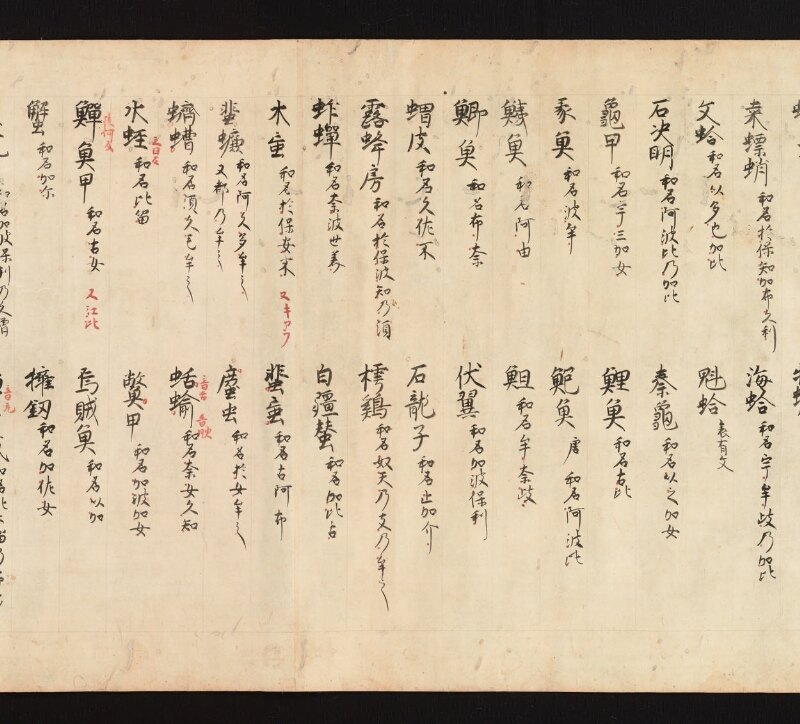 桒螵蛸 和名於保知加布久利
海蛤 和名宇牟岐乃加比
文蛤 和名以多也加比
魁蛤 表有文
石决明 和名阿波比乃加比
秦龜 和名以之加女
龜甲 和名宇三加女
鯉魚 和名古比
豕魚 和名波牟
鮑魚 唐 和名阿波比
鱯魚 和名阿由
䱇 和名牟奈岐
鯽魚 和名布奈
伏翼 和名加波保利
蝟皮 和名久佐不
石龍子 和名止加介
露蜂房 和名於保波知乃須
樗鷄 和名奴天乃支乃牟之
蚱蟬 和名奈波世美
白殭蠶 和名加比古
木䖟 和名於保安不 又キアフ
蜚䖟 和名古阿布
蜚蠊 和名阿久多牟之
又都乃牟之
䗪虫 和名於女牟之
蠐螬 和名須久毛牟之
蛞蝓 音古 音臾 和名奈女久知
水蛭 和名比留
鼈甲 和名加波加女
鱓魚甲 和名古女 又江比
烏賊魚 和名以加
蟹 和名加尓
擁釼 和名加佐女